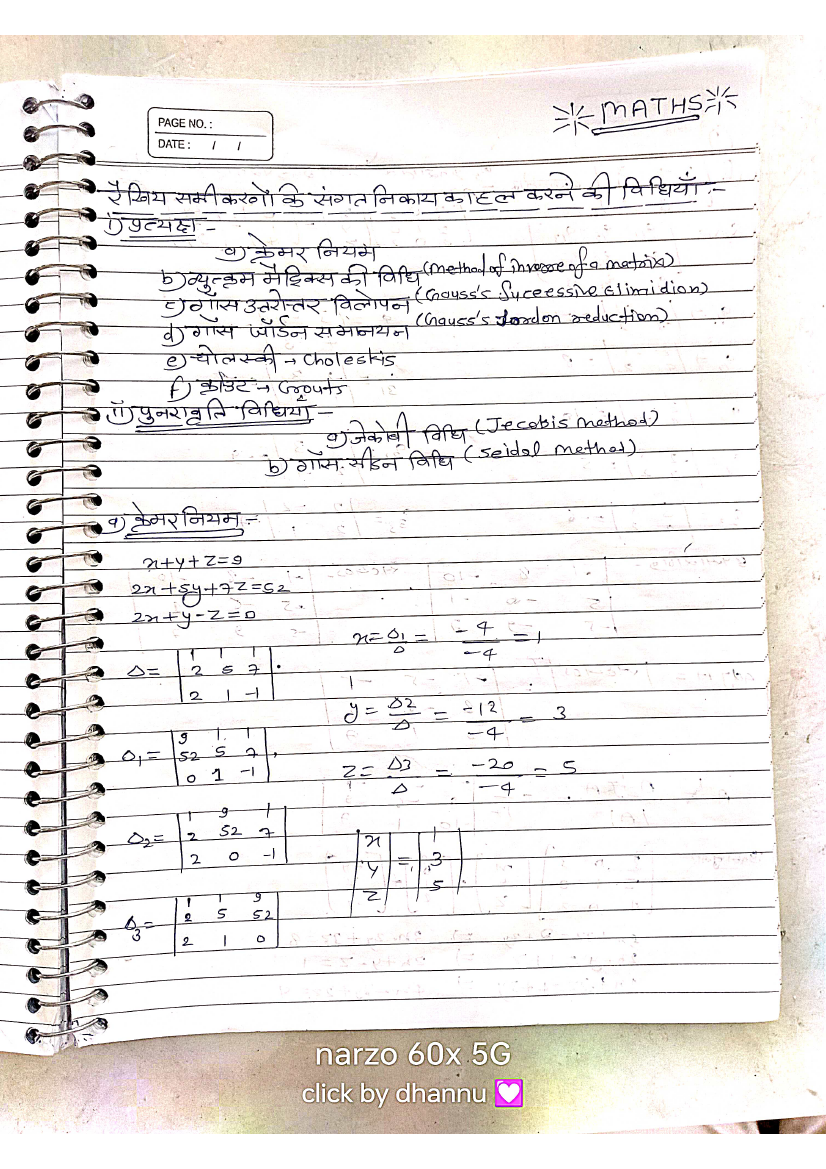 MATHS
PAGE NO. :
DATE : / /
रैखिय समीकरणों कि संगत निकाय का हल करने की विधियाँ :-
i) प्रत्यक्ष -
a) क्रेमर नियम
b) व्युत्क्रम मैट्रिक्स की विधि (Method of inverse of a matrix)
c) गॉस उत्तरोत्तर विलोपन (Gauss's Syceessive Elimidion)
d) गॉस जॉर्डन समानयन (Gauss's Jordon reduction)
e) चोलस्की → Choleskis
f) क्राउट → Crouts
ii) पुनरावृति विधियाँ -
a) जेकोबी विधि (Jecobis method)
b) गॉस सीडन विधि (Seidal method)
a) क्रेमर नियम :-
x+y+z=9
2x+5y+7z=52
2x+y-z=0
Δ= | 1 1 1 |
| 2 5 7 |
| 2 1 -1 |
Δ1 = | 9 1 1 |
| 52 5 7 | ,
| 0 1 -1 |
Δ2= | 1 9 1 |
| 2 52 7 |
| 2 0 -1 |
Δ3= | 1 1 9 |
| 2 5 52 |
| 2 1 0 |
x = Δ1/Δ = -4/-4 = 1
y = Δ2/Δ = -12/-4 = 3
z = Δ3/Δ = -20/-4 = 5
| x | = | 1 |
| y | | 3 |
| z | | 5 |
narzo 60x 5G
click by dhannu 💟